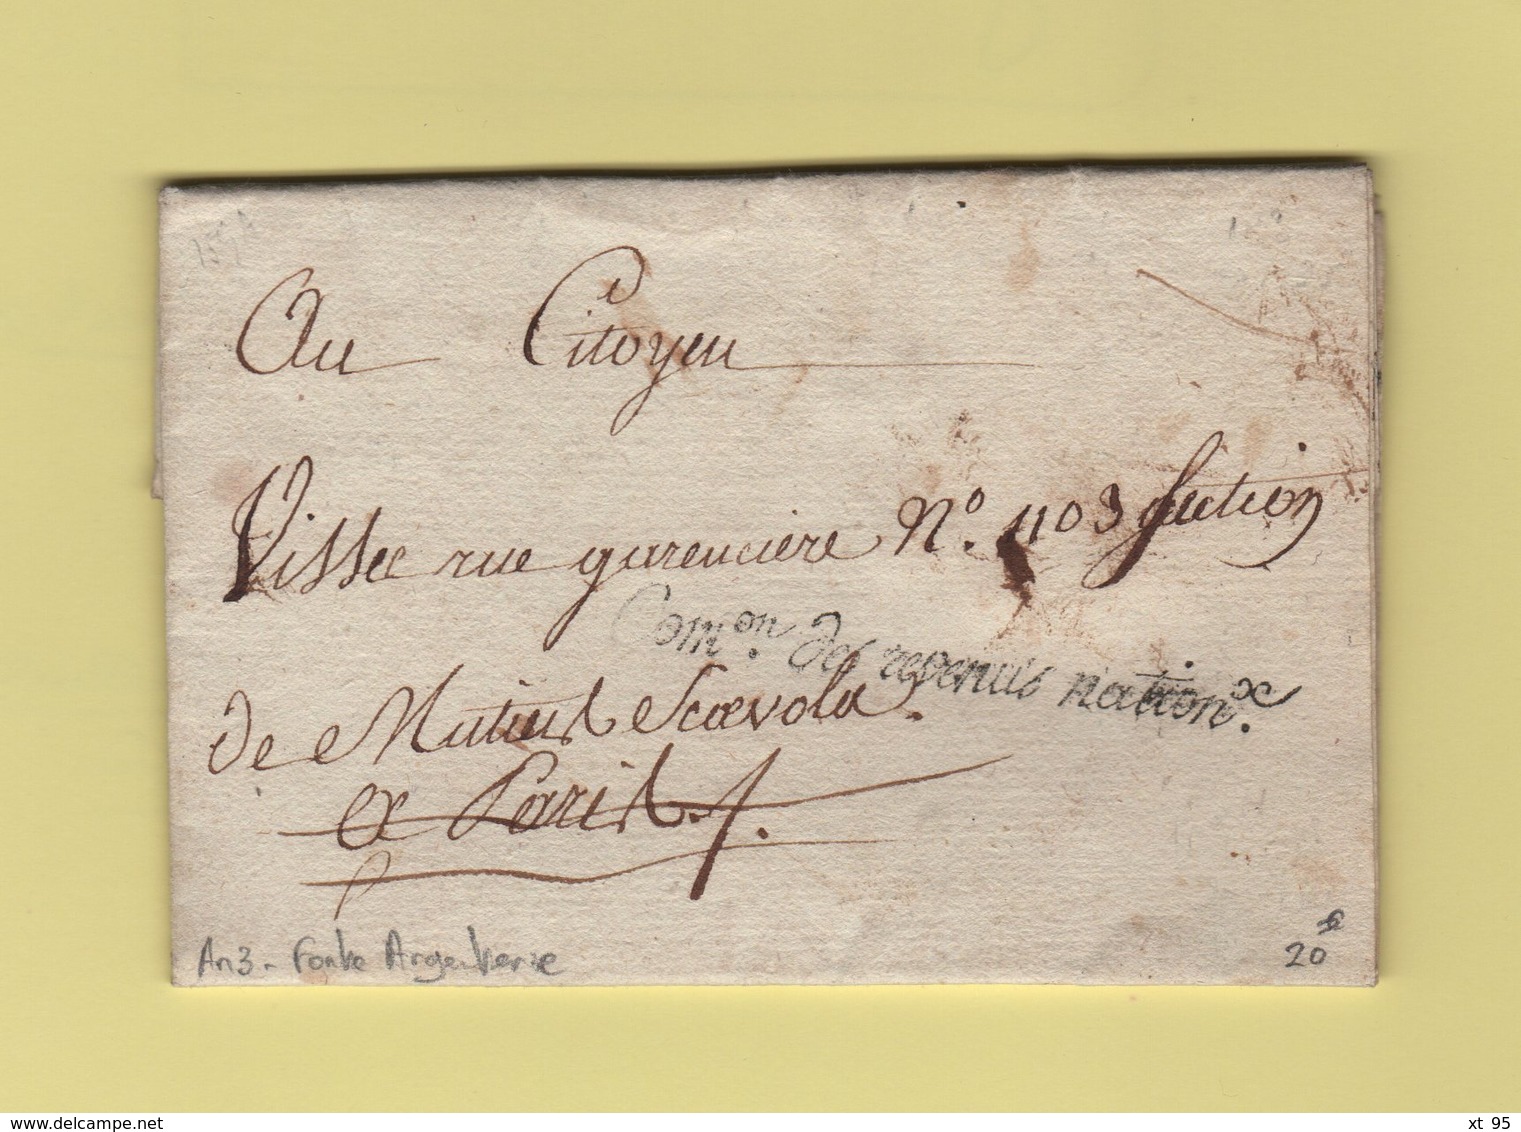 Au Citoyen
Vissec rue garenciere N.º 1103 section
Com.on des revenus nation.x
de Mutius Scœvola.
a Paris./.
An 3 - Fonte Argenterie
20 €
www.delcampe.net
xt 95